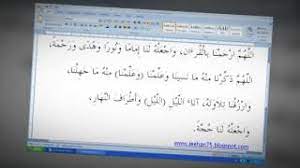 اللَّهُمَّ ارْحَمْنَا بِالْقُرْءَانِ، وَاجْعَلْهُ لَنَا إِمَامًا وَنُورًا وَهُدًى وَرَحْمَةً،
اللَّهُمَّ ذَكِّرْنَا مِنْهُ مَا نَسِينَا وَعَلِّمْنَا (وَعَلِّمْنَا) مِنْهُ مَا جَهِلْنَا،
وَارْزُقْنَا تِلَاوَتَهُ، آنَآ اللَّيْلِ (اللَّيْلِ) وَأَطْرَافَ النَّهَارِ،
وَاجْعَلْهُ لَنَا حُجَّةً.